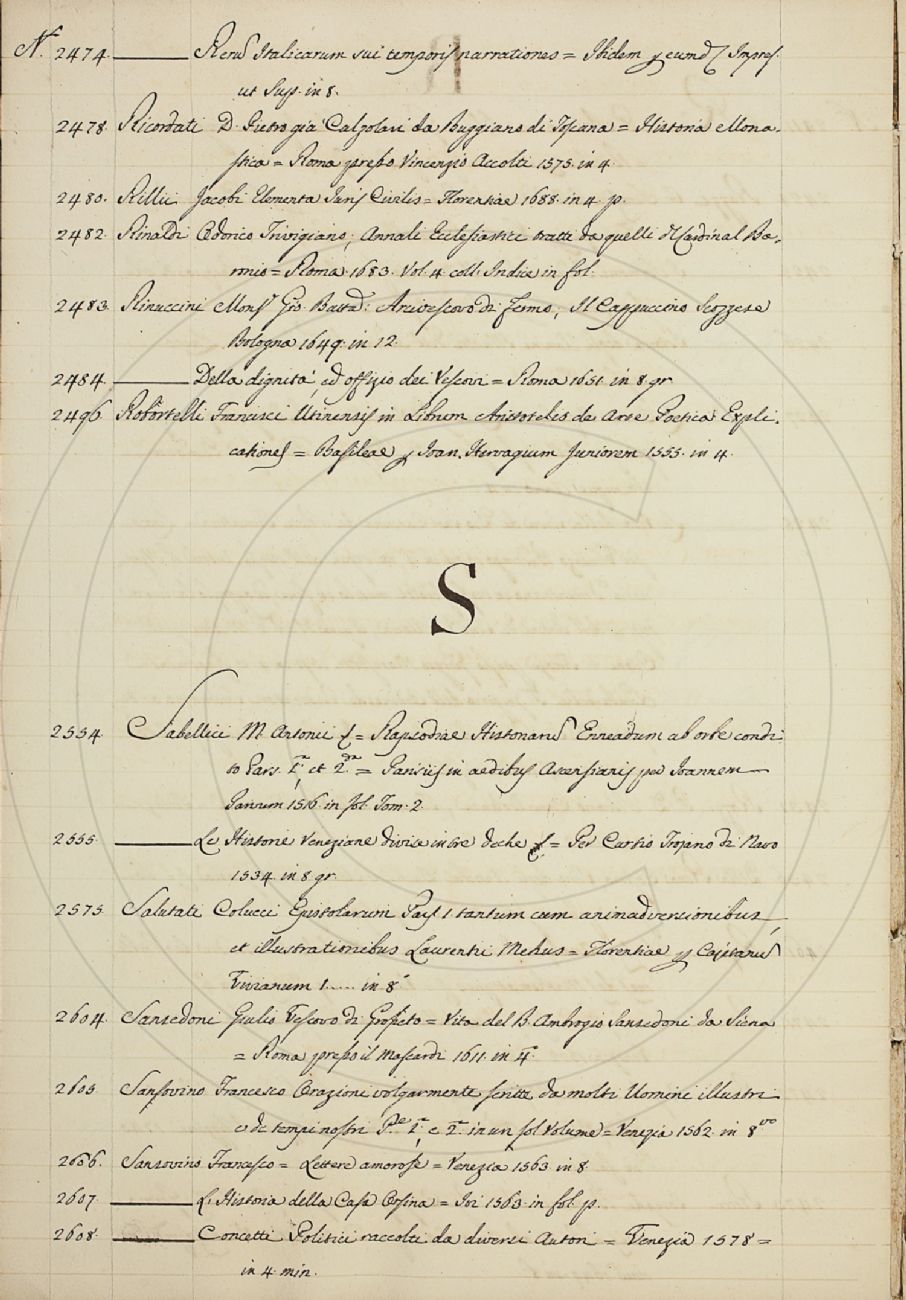 N.º 2474. ——— Rerũ Italicarum sui temporis narrationes = Ibidem p eumd. Impres.
ut Supr. in 8.
2478. Ricordati D. Pietro già Calzolari da Buggiano di Toscana = Historia Mona-
stica = Roma presso Vincenzio Accolti 1575. in 4.
2480. Rillii Jacobi Elementa Juris Civilis = Florentiae 1688. in 4. p.
2482. Rinaldi Odorico Trivigiano, Annali Ecclesiastici tratti da quelli del Cardinal Ba-
ronio = Roma 1683. Vol. 4. coll. Indice in fol.
2483. Rinuccini Monsr. Gio. Battā: Arcivescovo di Fermo, Il Cappuccino Scozzese
Bologna 1649. in 12.
2484. ——— Della dignità, ed offizio dei Vescovi = Roma 1651. in 8. gr.
2496. Robortelli Francisci Utinensis in Librum Aristotelis de Arte Poetica Expli-
cationes = Basileae p Joan. Hervagium Juniorem 1555. in 4.
S
2554. Sabellici M. Antonii = Rapsodiae Historiarũ Enneadum ab orbe condi-
to Pars 1.ª et 2.da = Parisiis in aedibus Ascensianis per Joannem
Parvum 1516. in fol. Tom. 2.
2555. ——— Le Historie Veneziane divise in tre deche = Per Curtio Trojano di Navo
1534. in 8. gr.
2575. Salutati Colucci Epistolarum Pars 1. tantum cum animadversionibus,
et illustrationibus Laurentii Mehus = Florentiae p Cajetanũ
Vivianum 1..... in 8.º
2604. Sansedoni Giulio Vescovo di Grosseto = Vita del B. Ambrogio Sansedoni da Siena
= Roma presso il Mascardi 1611. in 4.º
2605. Sansovino Francesco Orazioni volgarmente scritte da molti Uomini illustri
e de tempi nostri P.te 1.ª e 2.ª in un sol Volume = Venezia 1562. in 8.vo
2606. Sansovino Francesco = Lettere amorose = Venezia 1563. in 8.
2607. ——— L'Historia della Casa Orsina = Ivi 1565. in fol. p.
2608. ——— Concetti Politici raccolti da diversi Autori = Venezia 1578 =
in 4. min.